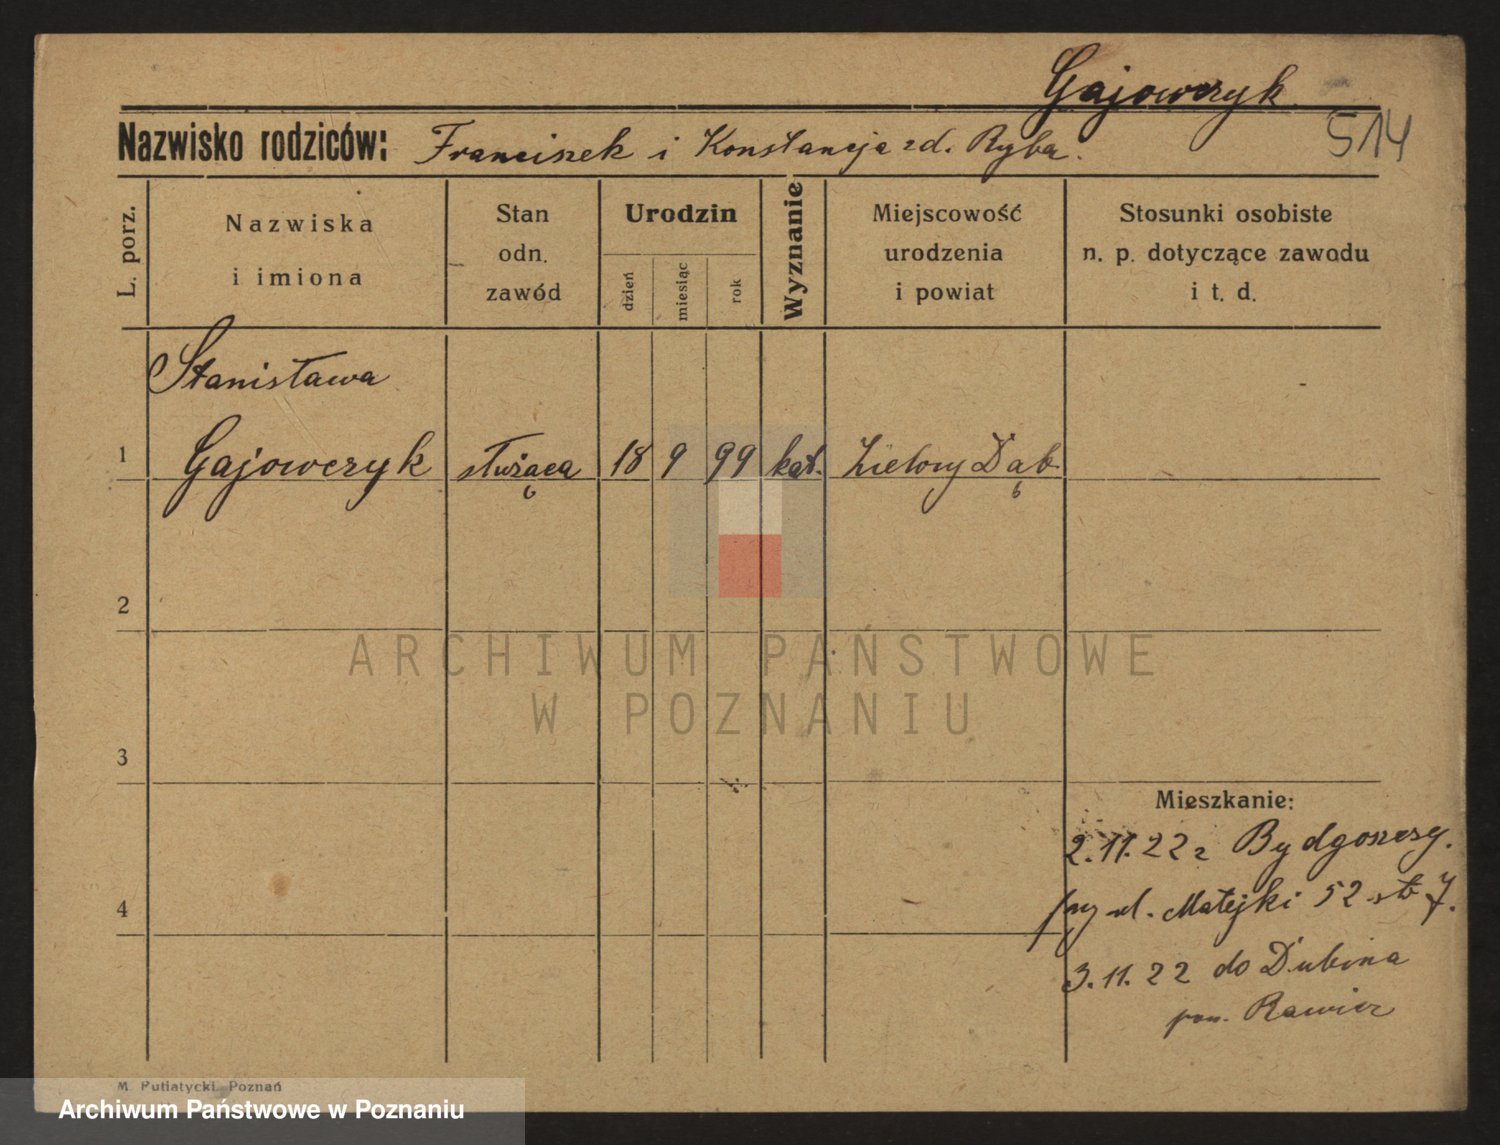 Gajowczyk
Nazwisko rodziców: Franciszek i Konstancja zd. Ryba.
514
L. porz.
Nazwiska
i imiona
Stan
odn.
zawód
Urodzin
dzień
miesiąc
rok
Wyznanie
Miejscowość
urodzenia
i powiat
Stosunki osobiste
n. p. dotyczące zawodu
i t. d.
Stanisława
1 Gajowczyk służąca 18 9 99 kat. Zielony Dąb
2
3
4
Mieszkanie:
2.11.22 z Bydgoszczy.
przy ul. Matejki 52 stb 7.
3.11.22 do Dubina
pow. Rawicz
M. Putiatycki, Poznań
ARCHIWUM PAŃSTWOWE
W POZNANIU
Archiwum Państwowe w Poznaniu